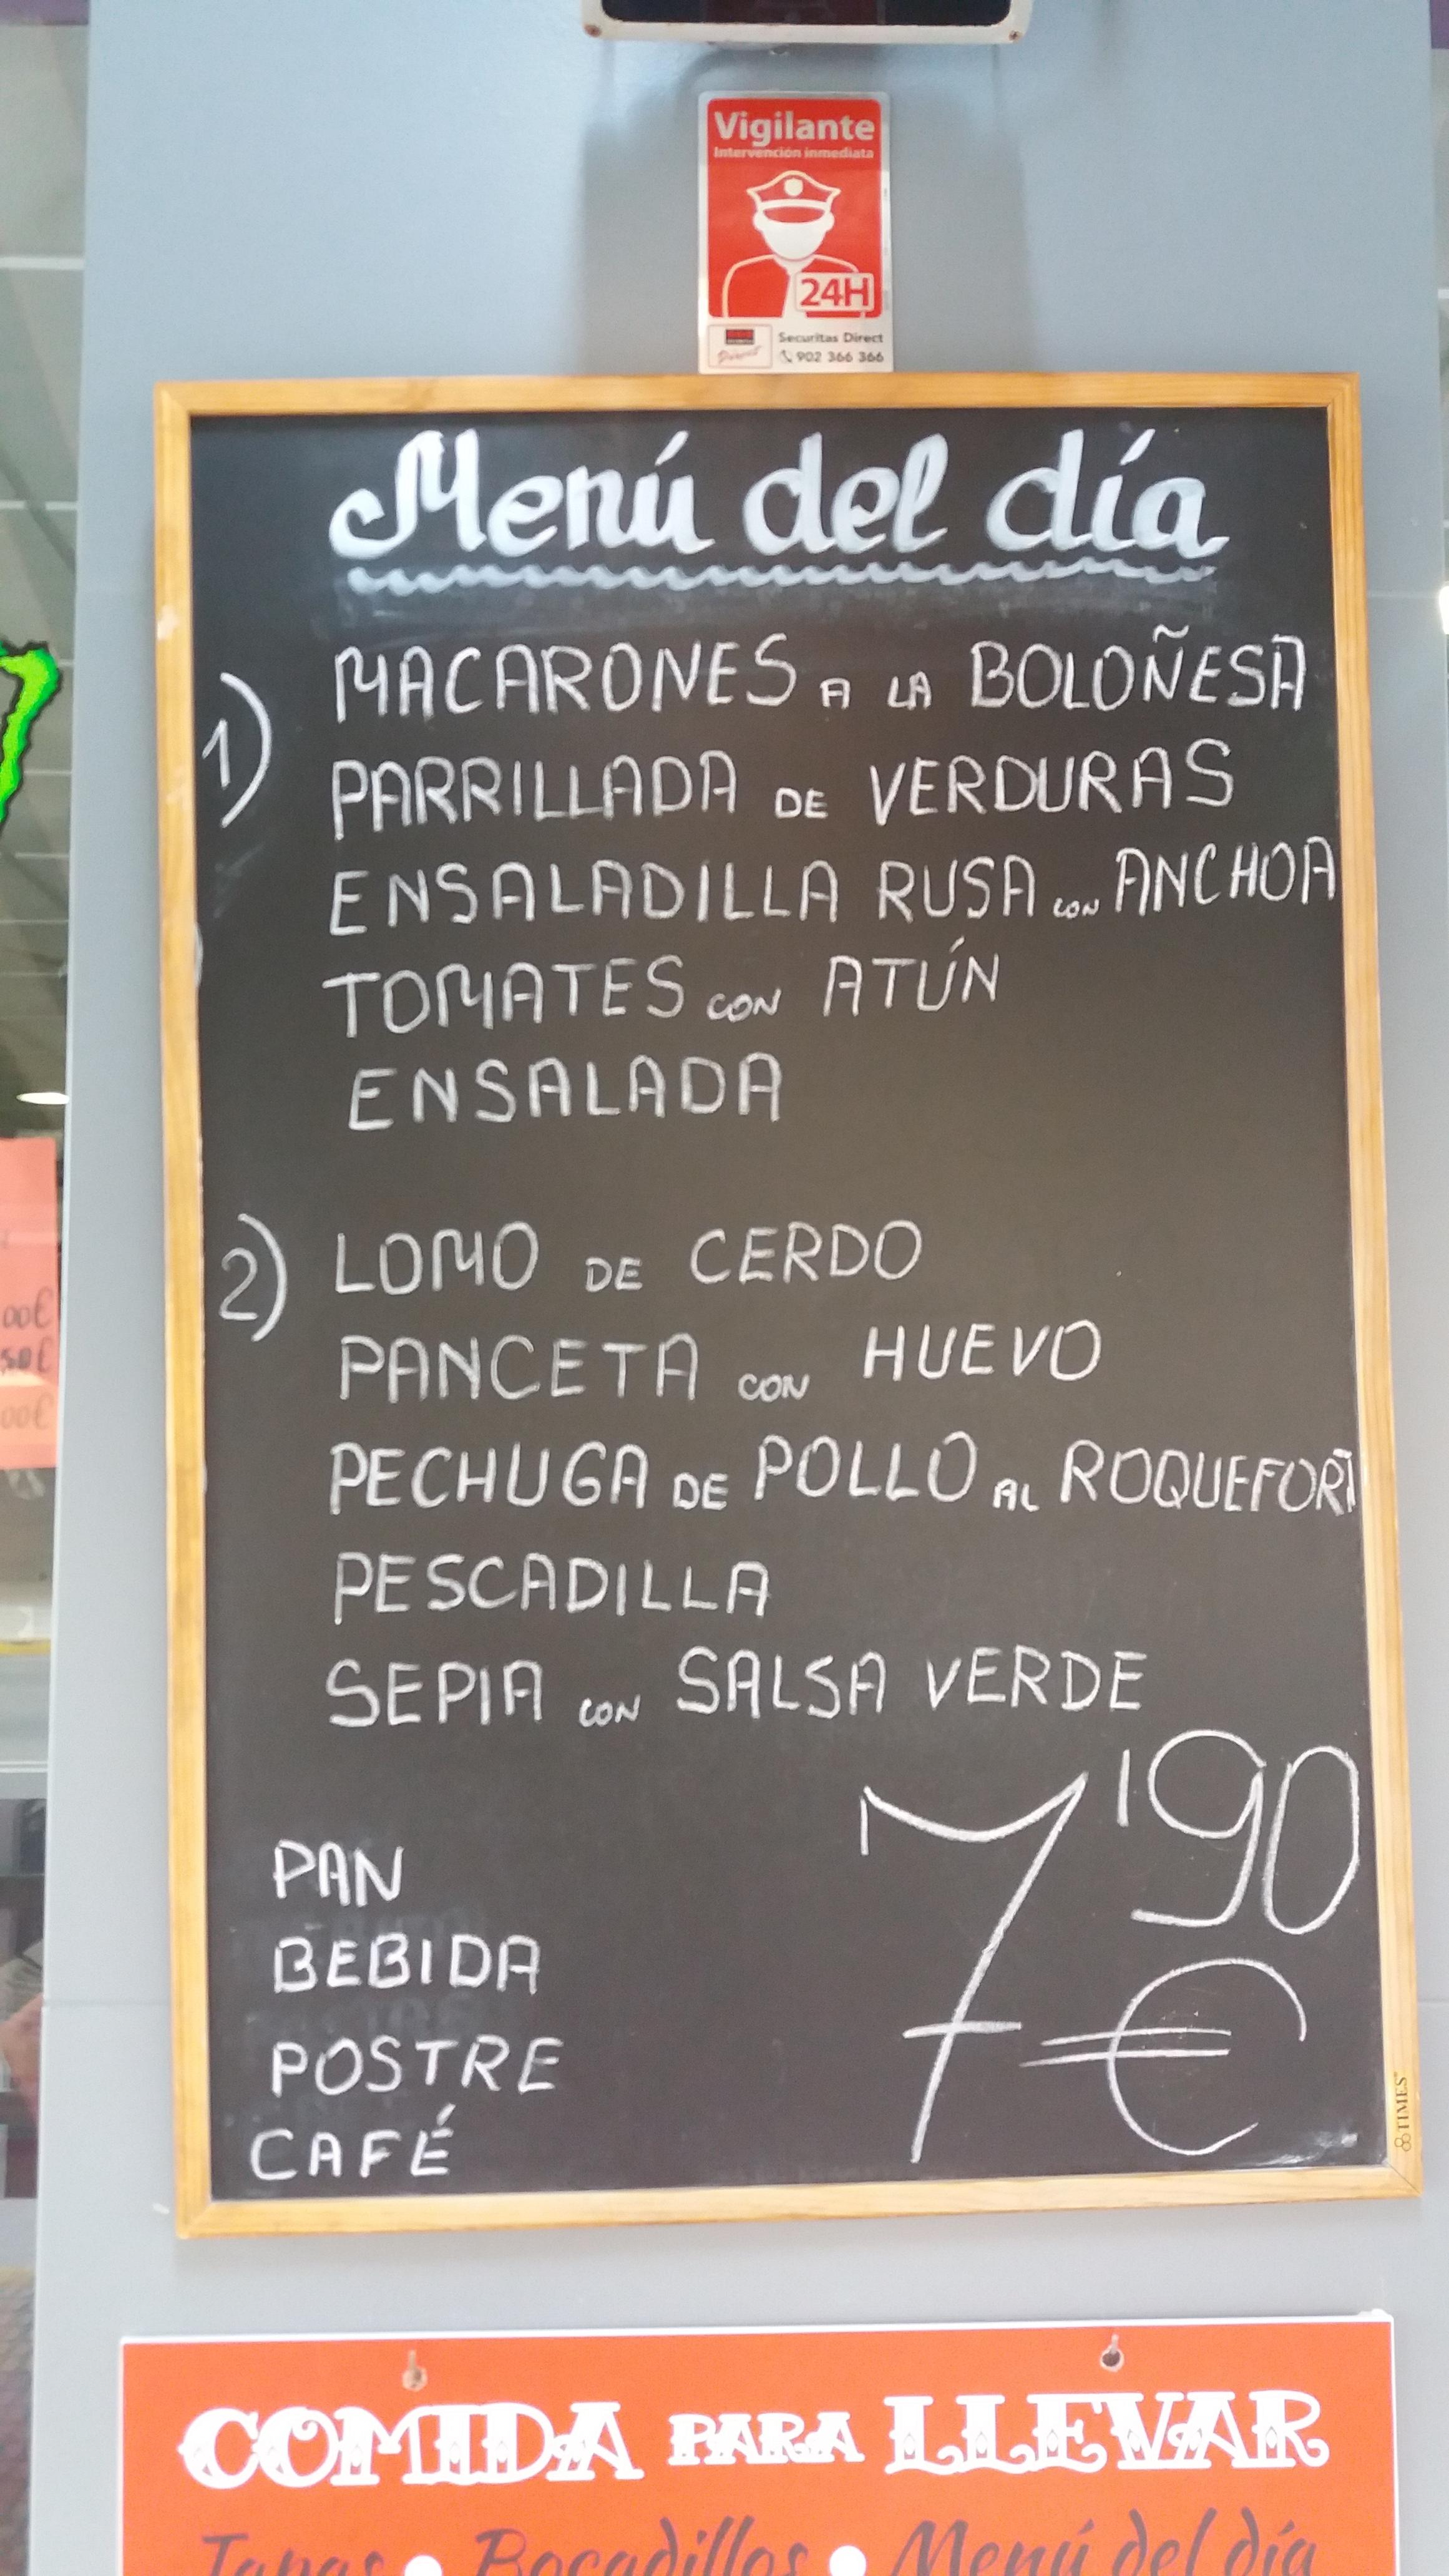 Vigilante
Intervención inmediata
24H
Securitas Direct
902 366 366
Menú del día
1) MACARONES A LA BOLOÑESA
PARRILLADA DE VERDURAS
ENSALADILLA RUSA CON ANCHOA
TOMATES CON ATÚN
ENSALADA
2) LOMO DE CERDO
PANCETA CON HUEVO
PECHUGA DE POLLO AL ROQUEFORT
PESCADILLA
SEPIA CON SALSA VERDE
7'90 €
PAN
BEBIDA
POSTRE
CAFÉ
TIMES
00€
,50€
00€
COMIDA PARA LLEVAR
Tapas • Bocadillos • Menú del día